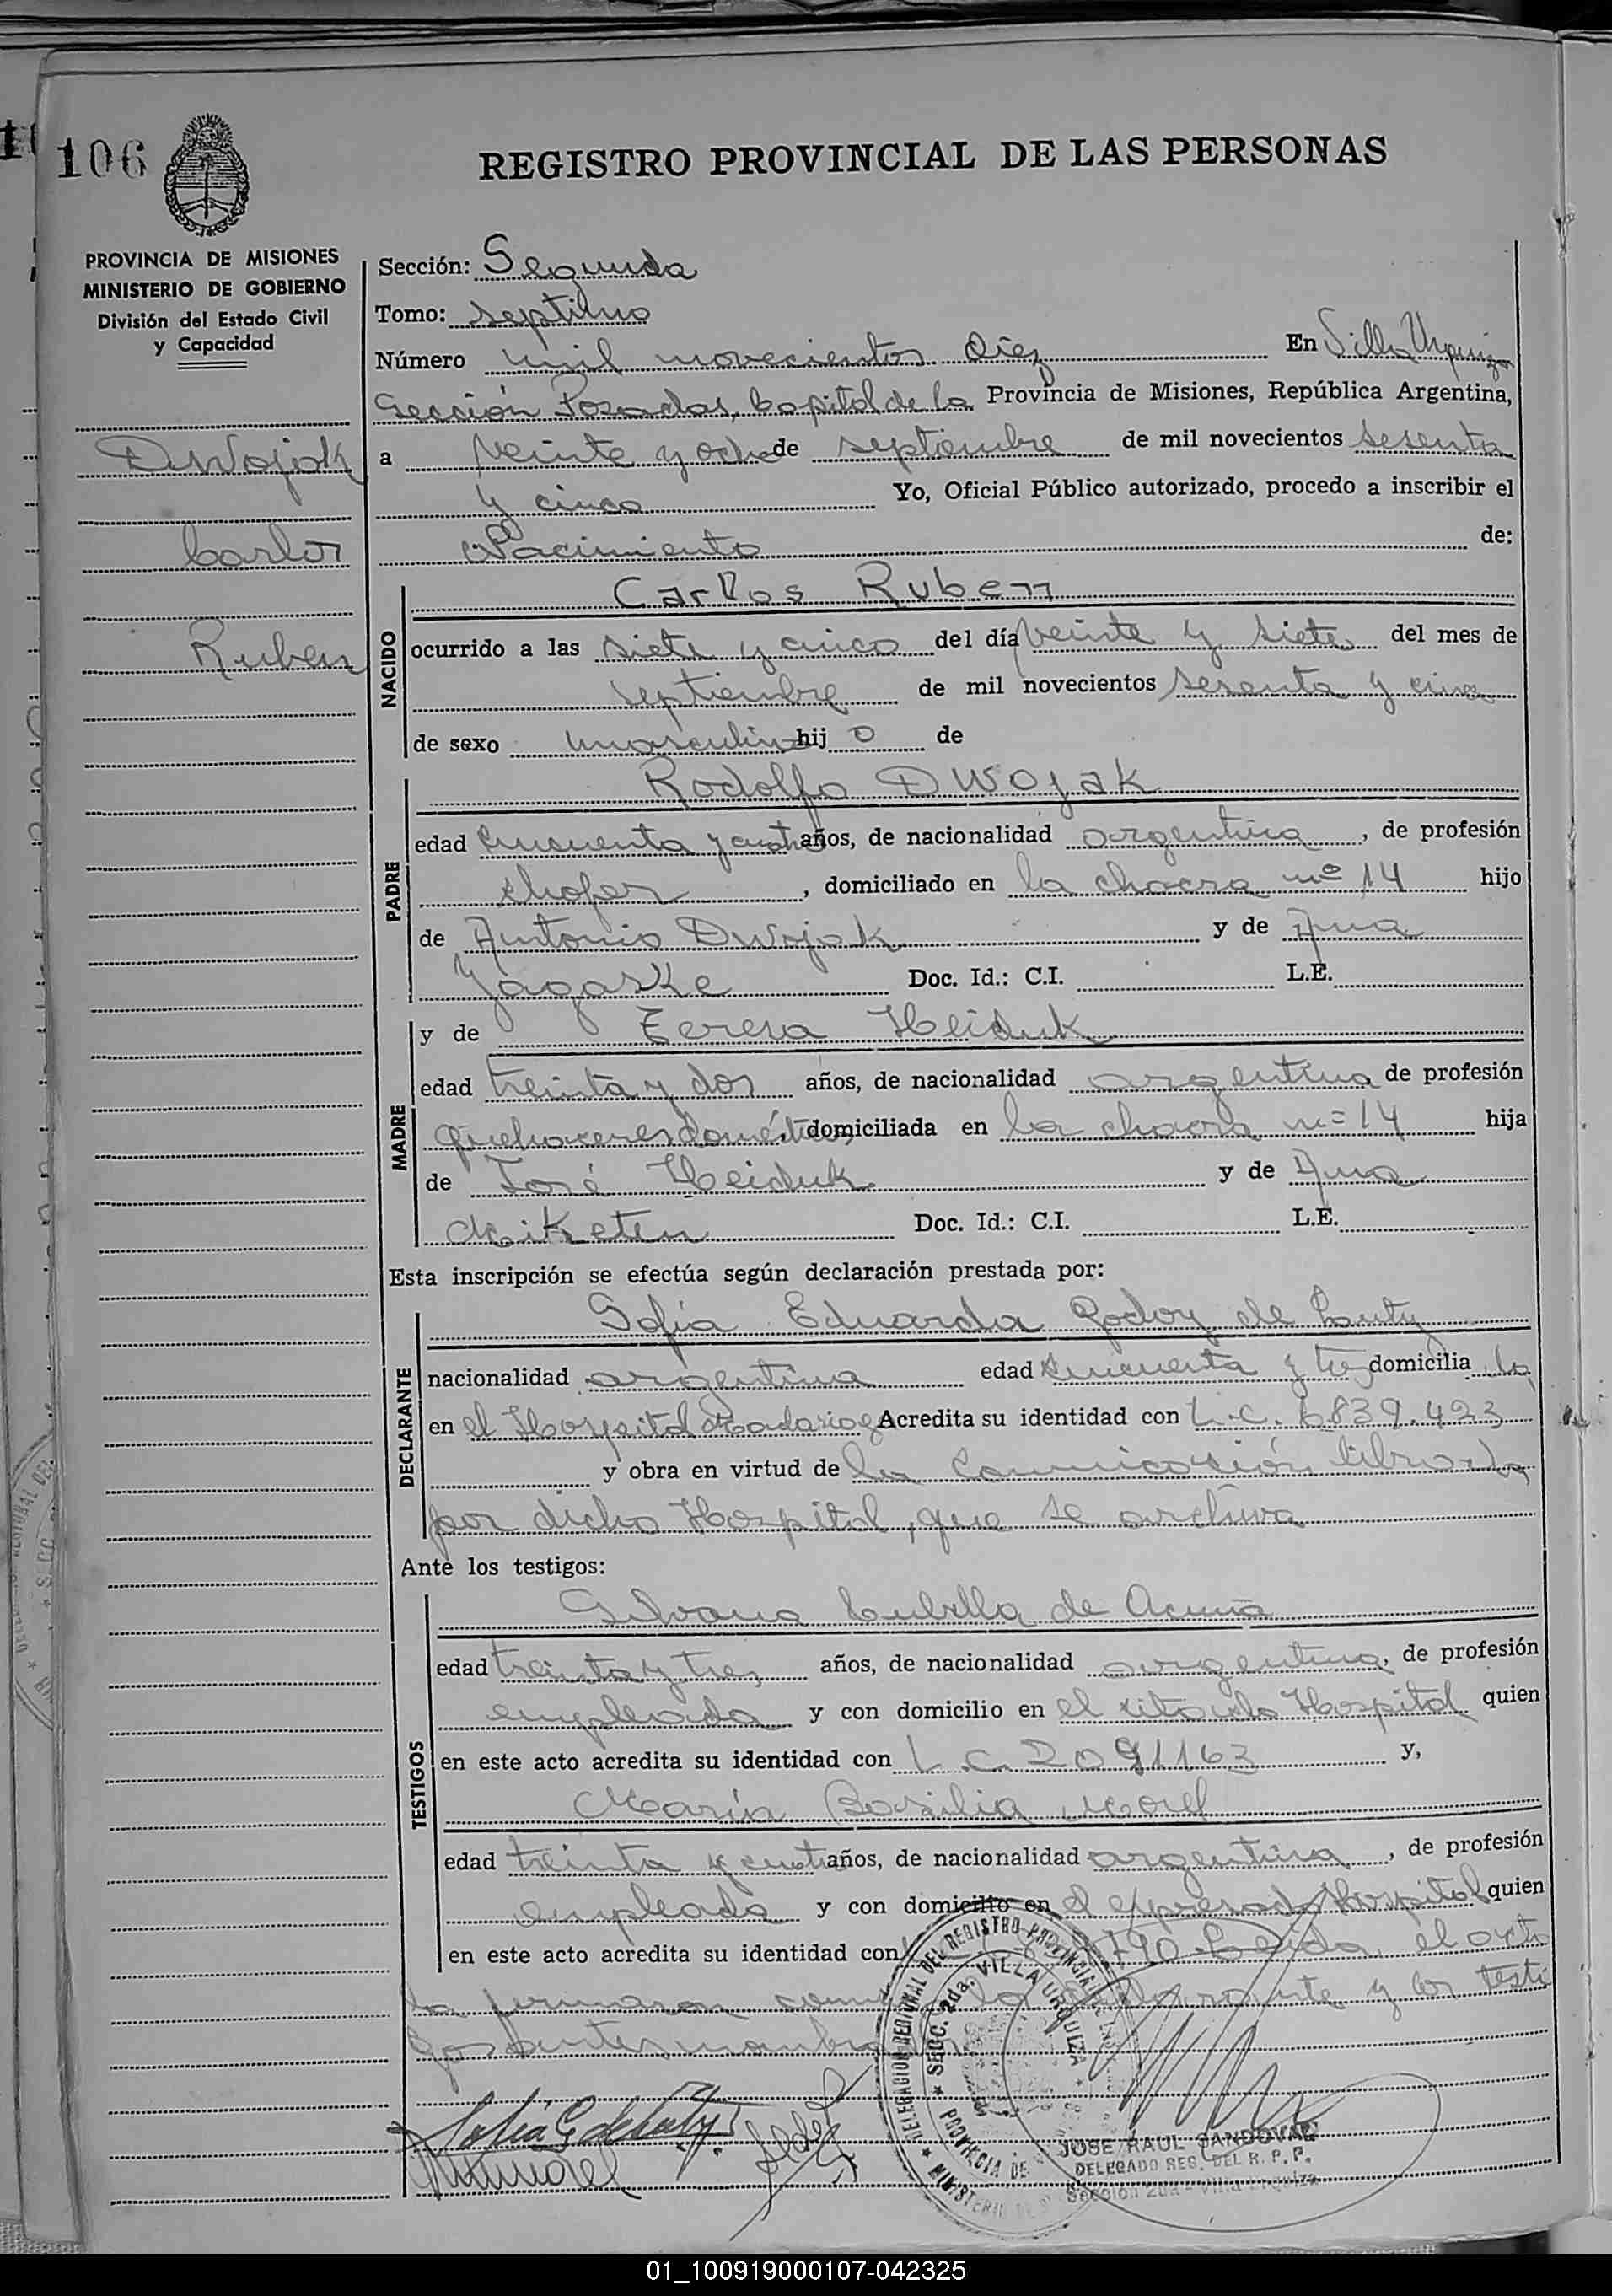 106
REGISTRO PROVINCIAL DE LAS PERSONAS
PROVINCIA DE MISIONES
MINISTERIO DE GOBIERNO
División del Estado Civil
y Capacidad
Dwojak
Carlos
Ruben
Sección: Segunda
Tomo: septimo
Número mil novecientos diez En Villa Urquiza
Sección Posadas, Capital de la Provincia de Misiones, República Argentina,
a veinte y ocho de septiembre de mil novecientos sesenta
y cinco Yo, Oficial Público autorizado, procedo a inscribir el
Nacimiento de:
NACIDO
Carlos Ruben
ocurrido a las siete y cinco del día veinte y siete del mes de
septiembre de mil novecientos sesenta y cinco
de sexo masculino hij o de
PADRE
Rodolfo Dwojak
edad cincuenta y cuatro años, de nacionalidad argentina, de profesión
chofer, domiciliado en la chacra nº 14 hijo
de Antonio Dwojak y de Ana
Yagaske Doc. Id.: C.I. L.E.
MADRE
y de Teresa Heiduk
edad treinta y dos años, de nacionalidad argentina de profesión
quehaceres domésticos, domiciliada en la chacra nº 14 hija
de José Heiduk y de Ana
Miketen Doc. Id.: C.I. L.E.
Esta inscripción se efectúa según declaración prestada por:
DECLARANTE
Sofía Eduarda Godoy de Lauty
nacionalidad argentina edad cincuenta y tres domicilia da
en el Hospital Madariaga Acredita su identidad con L.C. 6839.423
y obra en virtud de la Comunicación librada
por dicho Hospital, que se archiva
Ante los testigos:
TESTIGOS
Silvana Cubilla de Acuña
edad treinta y tres años, de nacionalidad argentina, de profesión
empleada y con domicilio en el citado Hospital quien
en este acto acredita su identidad con L.C. 2091163 y,
María Basilia Morel
edad treinta y cuatro años, de nacionalidad argentina, de profesión
empleada y con domicilio en el expresado Hospital quien
en este acto acredita su identidad con 790 Leída el acta
la firmaron la declarante y los testi
gos antes nombrados
DELEGACION REGIONAL DEL REGISTRO PROVINCIAL
SECC. 2da. VILLA URQUIZA
PROVINCIA DE
JOSE RAUL SANDOVAL
DELEGADO RES. DEL R. P. P.
Sección 2da - Villa Urquiza
01_100919000107-042325